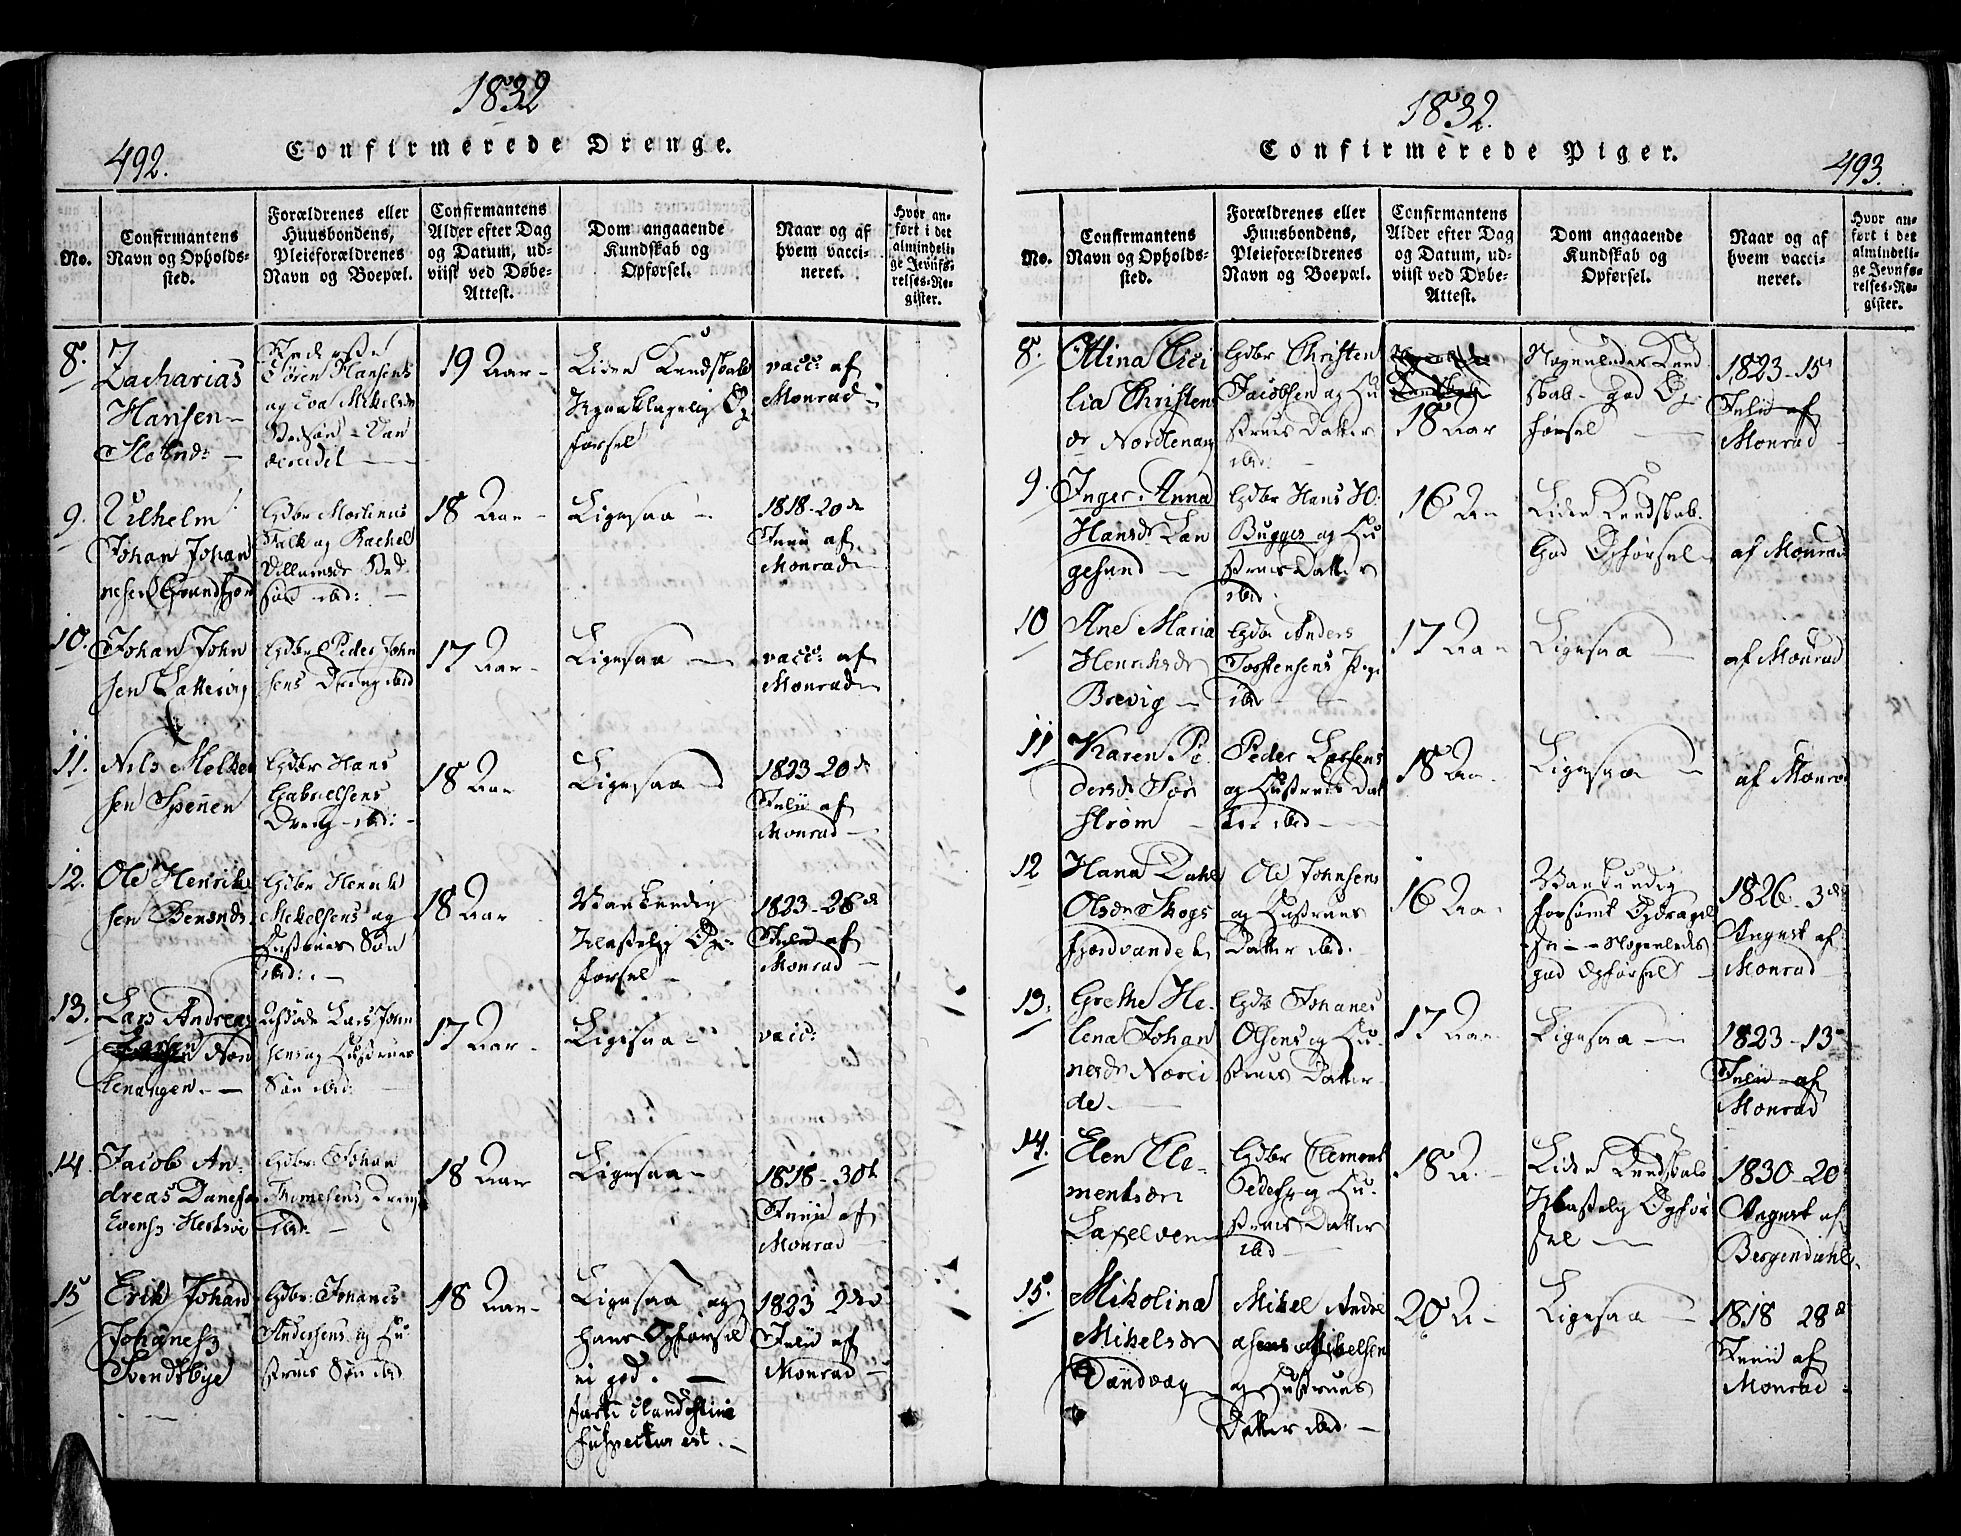 1832
492.
Confirmerede Drenge.
No.
Confirmantens
Navn og Opholds-
sted.
Forældrenes eller
Huusbondens,
Pleieforældrenes
Navn og Boepæl.
Confirmantens
Alder efter Dag
og Datum, ud-
viist ved Døbe-
Attest.
Dom angaaende
Kundskab og
Opførsel.
Naar og af
hvem vacci-
neret.
Hvor an-
ført i det
almindeli-
ge Jevnfø-
relses-Re-
gister.
8.
Zacharias
Hansen
19 Aar
Liden Kundskab
Ubeklagelig Op
førsel
vacc: af
Monrad
Søren Hansens
og Eva Mikelsd
9.
Vilhelm
Johan Johan
nesen Grundfjord
Gdbr Mortinus
Falk og Rachel
Villumsdr
søn ibd:
18 Aar
Ligesaa
1818-20de
Junii af
Monrad
10.
Johan John
sen Lattervig
Gdbr Peder John
sens Dreng ibd
17 Aar
Ligesaa
vacc: af
Monrad
11.
Nils Mikel
sen Spenen
Gdbr Hans
Gabrielsens
Dreng ibd:
18 Aar
Ligesaa
1823-20de
Julii af
Monrad
12.
Ole Henrik
sen
Gdbr Henrik
Mikelsens og
Hustrues Søn
ibd:
18 Aar
Vankundig
Ilastelig Op-
førsel
1823-26de
Julii af
Monrad
13.
Lars Andreas
Larsen
tenangen
Lars John
sens og Hustrues
Søn ibd:
17 Aar
Ligesaa
vacc:
14.
Jacob An-
dreas
Gdbr: Johan
Dreng
ibd:
18 Aar
Ligesaa
1818-30te
Junii af
Monrad
15
Erik Johan
Johannes
Svendsbye
Gdbr: Johanes
Andersens og Hu
strues Søn ibd
18 Aar
Ligesaa og
hans Opførsel
ei god.
clandestini
suspectus est.
1823 2den
Julii af
Monrad
1832.
493.
Confirmerede Piger.
No.
Confirmantens
Navn og Opholds-
sted.
Forældrenes eller
Huusbondens,
Pleieforældrenes
Navn og Boepæl.
Confirmantens
Alder efter Dag
og Datum, ud-
viist ved Døbe-
Attest.
Dom angaaende
Kundskab og
Opførsel.
Naar og af
hvem vacci-
neret.
Hvor an-
ført i det
almindeli-
ge Jevnfø-
relses-Re-
gister.
8.
Ottina Cici
lia Christens
dr Nordtenang
Gdbr Christen
Jacobsen og Hu
strues Datter
ibd:
18 Aar
Nogenledes Kund
skab - god Op
førsel
1823-15de
Julii af
Monrad
9.
Inger Anna
Hansdr Lan
gesund
Gdbr Hans H:
Bugges og Hu
strues Datter
ibd:
16 Aar
Liden Kundskab.
God Opførsel
af Monrad
10
Ane Maria
Henriksdr
Brevig
Gdbr Anders
Torstensens Pige
ibd
17 Aar
Ligesaa
af Monrad
11
Karen Pe
dersdr Sør
strøm
Peder Larsens
og Hustrues Dat
ter ibd
18 Aar
Ligesaa
af Monrad
12
Hana Dahl
Olsdr Skogs
fjordvandet
Ole Johnsens
og Hustrues
Datter ibd.
16 Aar
Vankundig
forsømt Opdragel
se - Nogenledes
god Opførsel
1826-3die
August af
Monrad
13.
Grethe He-
lena Johan
nesdr Norei
de.
Gdbr Johanes
Olsens og Hu-
strues Datter
17 Aar
Ligesaa
1823-13de
Julii af
Monrad
14.
Elen Cle-
mentsdr
Laxelven
Gdbr Clement
Peders og Hu-
strues Datter
ibd
18 A.
Liden Kundskab
Ulastelig Opfør
sel
1830-20
August af
Bergendahl.
15.
Mikolina
Mikelsdr
Sandvag
Mikel Andre
asens Mikelsen
og Hustrues
Datter ibd
20 A
Ligesaa
1818 28de
Junii af
Monrad